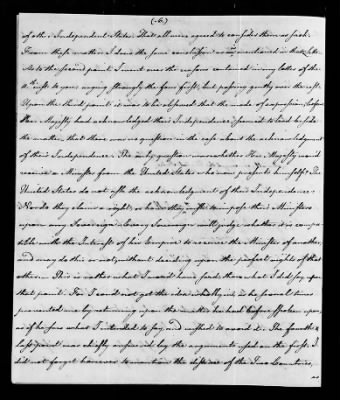 (6.)
of other Independent States. That all were agreed to consider them as such.
From these matters I drew the same conclusion as are mentioned in that Letter.
As to the second point I went over the reasons contained in my letter of the
inst to you, urging strongly the four first, but passing gently over the rest.
Upon the third point it was to be observed that the mode of expression, before
Her Majesty had acknowledged their Independence, seemed to lead beside
the matter, that there was no question in the case about the acknowledgment
of their Independence. The only question was whether Her Majesty would
receive a Minister from the United States who now presents himself. The
United States do not ask the acknowledgment of their Independence.
Nor do they claim a right, as has been said to impose their Ministers
upon any Sovereign. Every Sovereign will judge whether it is compa-
tible with the Interests of his Empire to receive the Minister of another,
and may do this or not, without deciding upon the perfect right of that
other. This is rather what I would have said, than what I did say upon
that point. For I could not get the idea wholly in, as he several times
prevented me by returning upon the matter he had before spoken upon,
as if he saw what I intended to say, and wished to avoid it. The fourth &
last point was chiefly answered by the arguments used on the first. I
did not forget however to mention the distance of the Two Countries,